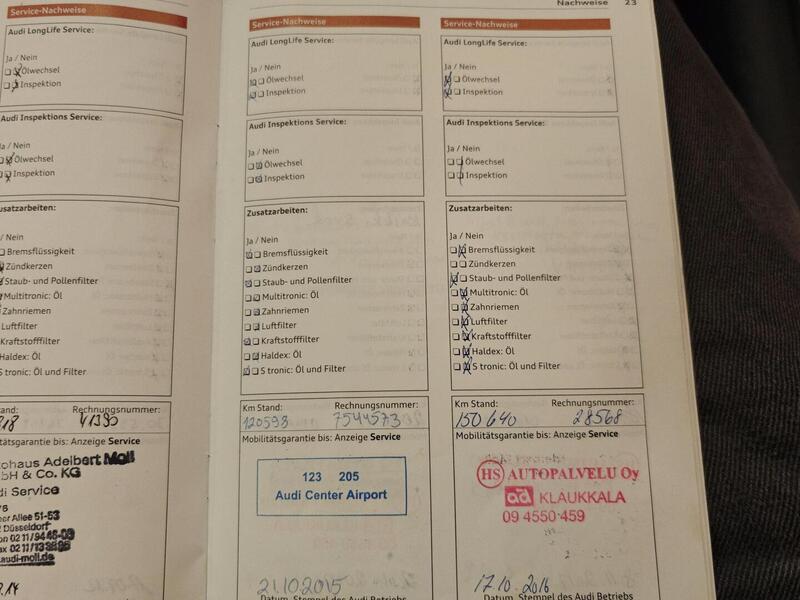 Nachweise 23
Service-Nachweise
Audi LongLife Service:
Ja / Nein
Ölwechsel
Inspektion
Audi Inspektions Service:
Ja / Nein
Ölwechsel
Inspektion
Zusatzarbeiten:
Ja / Nein
Bremsflüssigkeit
Zündkerzen
Staub- und Pollenfilter
Multitronic: Öl
Zahnriemen
Luftfilter
Kraftstofffilter
Haldex: Öl
S tronic: Öl und Filter
Stand: Rechnungsnummer:
41395
itätsgarantie bis: Anzeige Service
tohaus Adelbert Moll
bH & Co. KG
di Service
er Allee 51-53
Düsseldorf
audi-moll.de
Service-Nachweise
Audi LongLife Service:
Ja / Nein
Ölwechsel
Inspektion
Audi Inspektions Service:
Ja / Nein
Ölwechsel
Inspektion
Zusatzarbeiten:
Ja / Nein
Bremsflüssigkeit
Zündkerzen
Staub- und Pollenfilter
Multitronic: Öl
Zahnriemen
Luftfilter
Kraftstofffilter
Haldex: Öl
S tronic: Öl und Filter
Km Stand: Rechnungsnummer:
120593 7544573
Mobilitätsgarantie bis: Anzeige Service
123 205
Audi Center Airport
21.10.2015
Datum, Stempel des Audi Betriebs
Service-Nachweise
Audi LongLife Service:
Ja / Nein
Ölwechsel
Inspektion
Audi Inspektions Service:
Ja / Nein
Ölwechsel
Inspektion
Zusatzarbeiten:
Ja / Nein
Bremsflüssigkeit
Zündkerzen
Staub- und Pollenfilter
Multitronic: Öl
Zahnriemen
Luftfilter
Kraftstofffilter
Haldex: Öl
S tronic: Öl und Filter
Km Stand: Rechnungsnummer:
150 640 28568
Mobilitätsgarantie bis: Anzeige Service
HS AUTOPALVELU Oy
ad KLAUKKALA
09 4550 459
17.10.2016
Datum, Stempel des Audi Betriebs